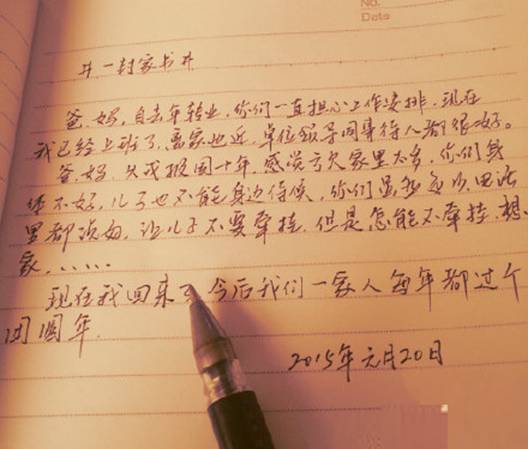 No.
Date
#一封家书#
爸、妈,自去年转业,你们一直担心工作安排,现在
我已经上班了,离家也近,单位领导同事待人都很好。
爸、妈,久戍报国十年,感觉亏欠家里太多,你们身
体不好,儿子也不能身边侍候,你们虽然每次电话
里都叮嘱,让儿子不要牵挂,但是怎能不牵挂,想
家,……
现在我回来了,今后我们一家人每年都过个
团圆年.
2015年元月20日